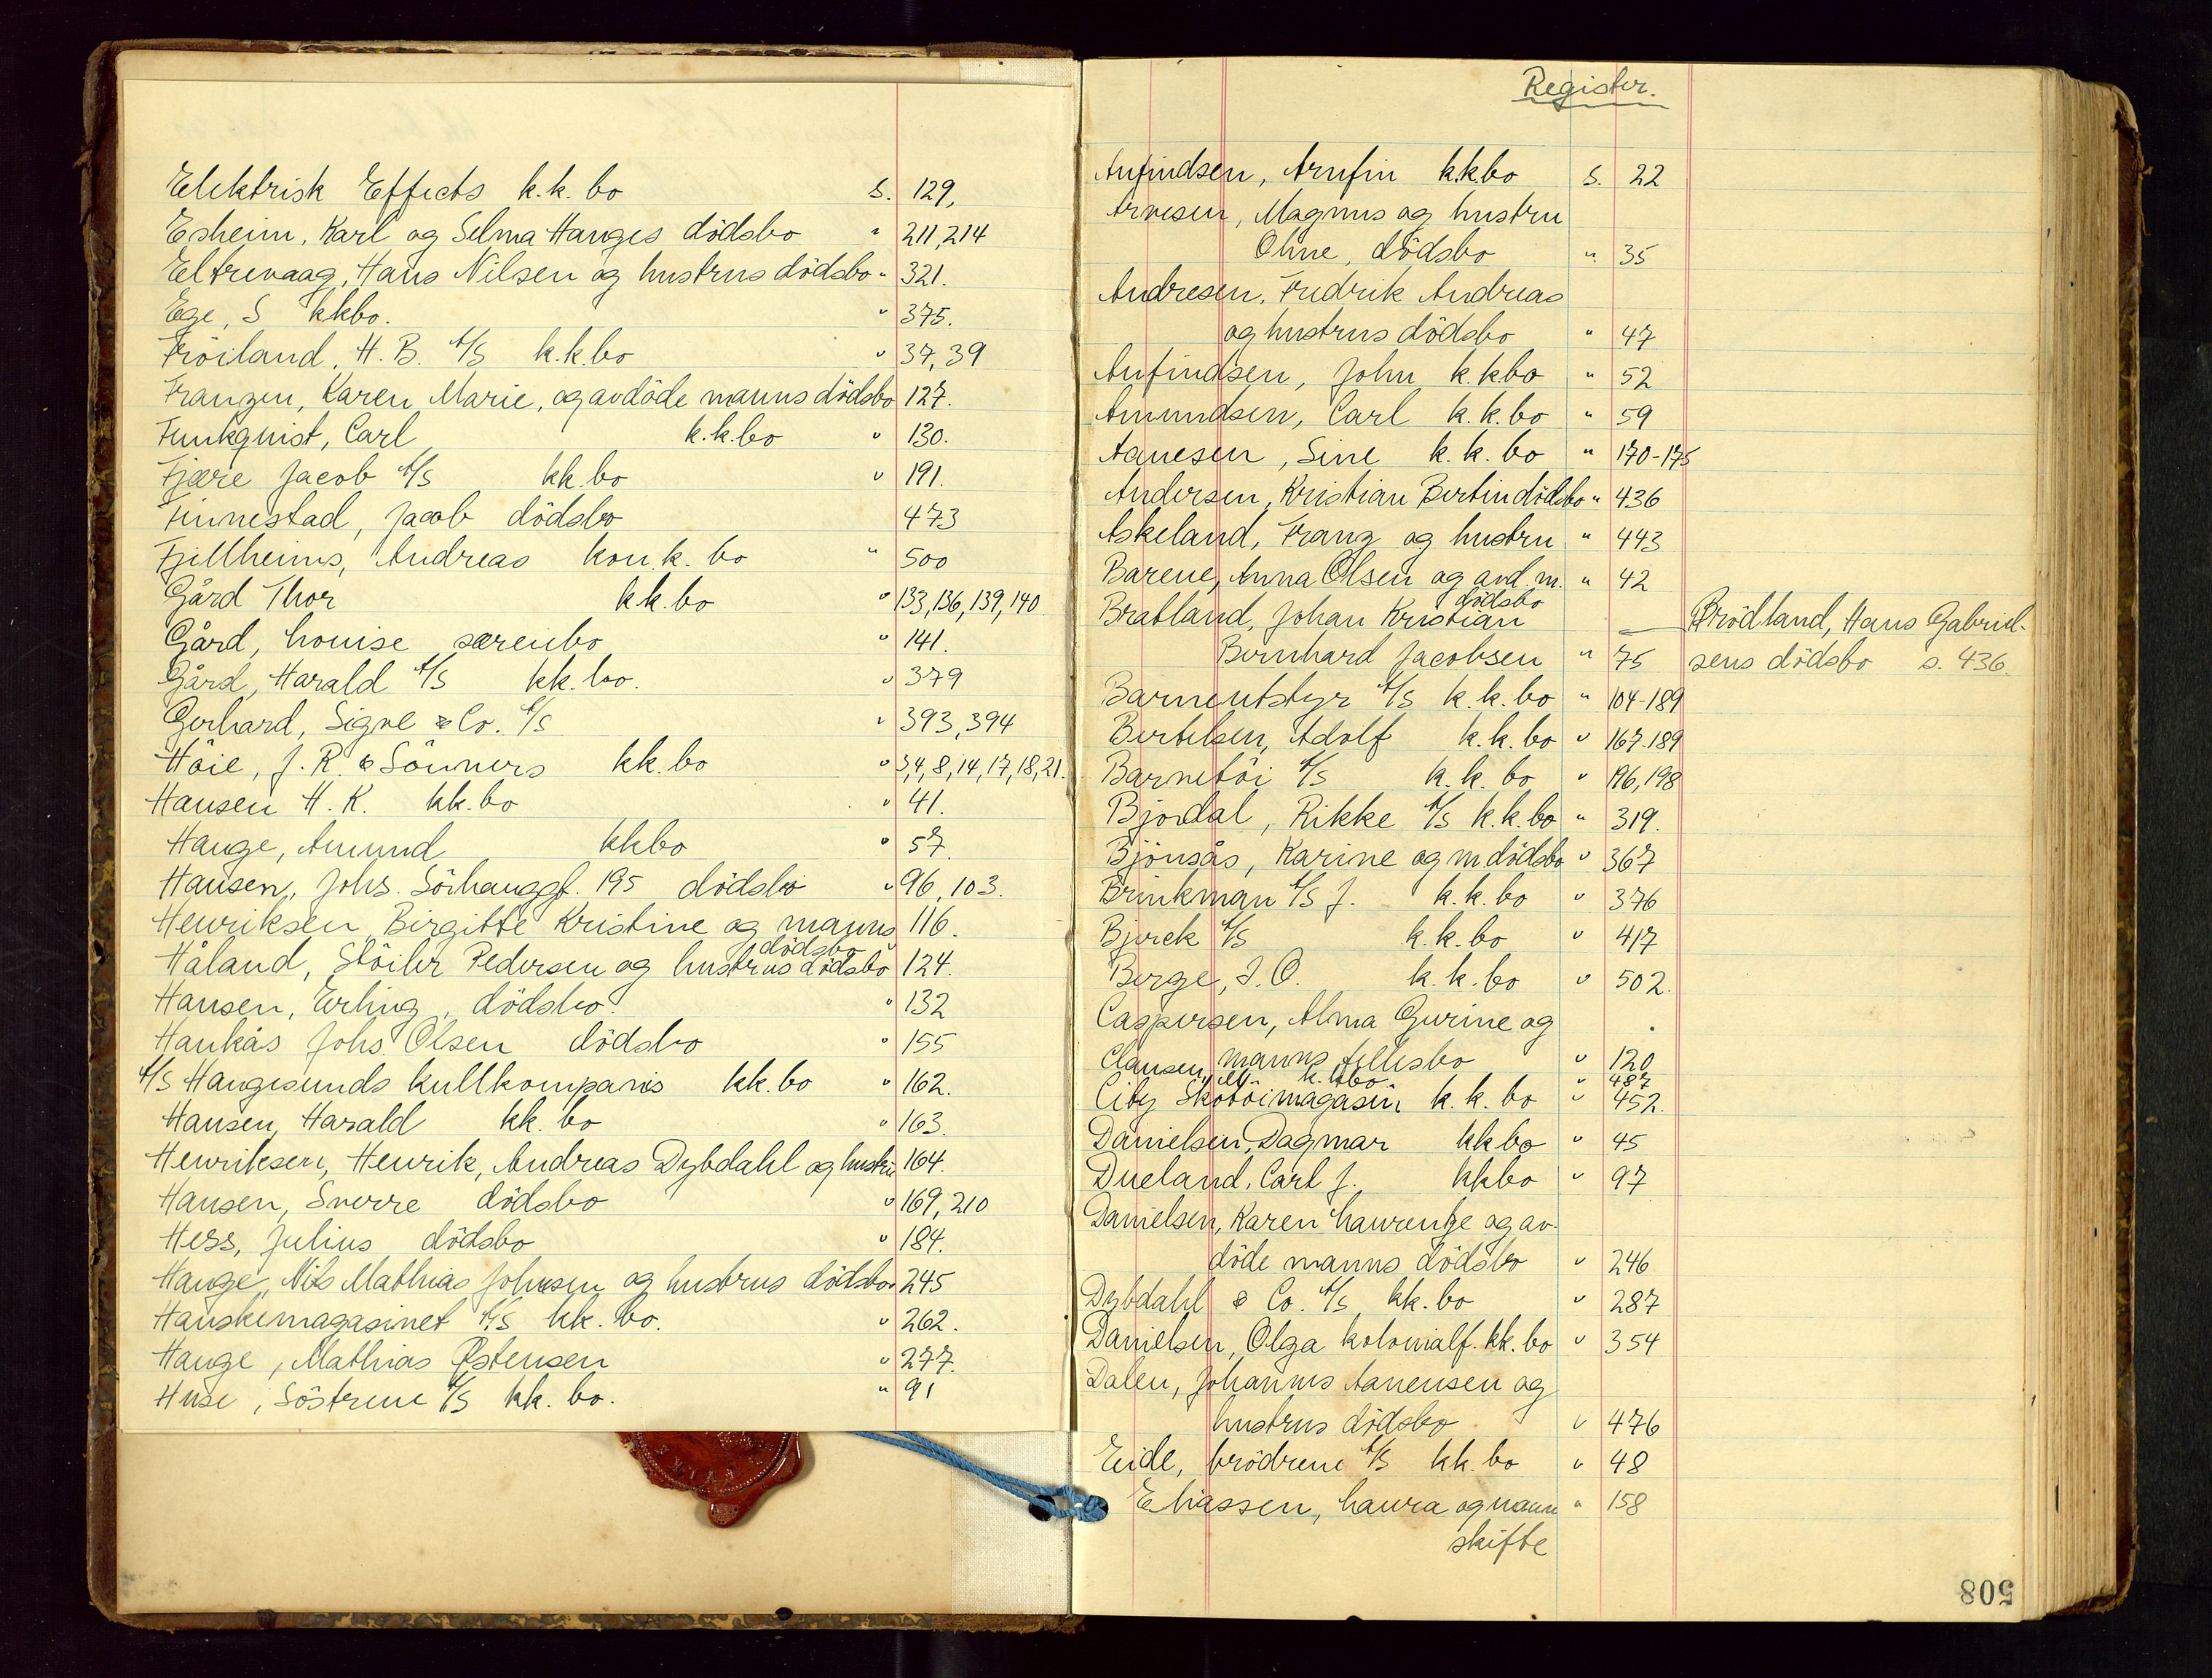 Elektrisk Effects k.k. bo s. 129,
Esheim, Karl og Selma Hanges dödsbo " 211, 214
Eltrevaag, Hans Nilsen og hustrus dödsbo " 321.
Ege, S kkbo. " 375.
Fröiland, H. B. A/S k.k. bo " 37, 39
Franzen, Karen Marie, og avdöde manns dödsbo 127.
Funkquist, Carl k.k. bo " 130.
Fjære Jacob A/S kk. bo " 191.
Finnestad, Jacob dödsbo 473
Fjellheims, Andreas kon.k. bo " 500
Gård Thor kk. bo " 133, 136, 139, 140
Gård, Louise særeiebo " 141.
Gård, Harald A/S kk. bo. " 379
Gerhard, Signe & Co. A/S " 393, 394
Höie, J. R. & Sönners kk. bo " 3, 4, 8, 14, 17, 18, 21.
Hansen H. K. kk. bo " 41.
Hauge, Amund kkbo " 57.
Hansen, Johs. Sörhauggt. 195 dödsbo " 96, 103.
Henriksen, Birgitte Kristine og manns 116.
dödsbo
Håland, Stöiler Pedersen og hustrus dödsbo 124.
Hansen, Erling, dödsbo. " 132
Haukås Johs. Olsen dödsbo " 155
A/S Haugesunds kullkompanis kk. bo " 162.
Hansen, Harald kk. bo " 163.
Henriksen, Henrik, Andreas Dybdahl og hustru 164.
Hansen, Sverre dödsbo " 169, 210
Hess, Julius dödsbo " 184.
Hauge, Nils Mathias Johnsen og hustrus dödsbo " 245
Hanskemagasinet A/S kk. bo. " 262.
Hauge, Mathias Østensen " 277.
Huse, Söstrene A/S kk. bo. " 91
Register.
Anfindsen, Arnfin k.k.bo s. 22
Arvesen, Magnus og hustru
Oline, dödsbo " 35
Andresen, Fredrik Andreas
og hustrus dödsbo " 47
Anfindsen, John k.k.bo " 52
Amundsen, Carl k.k. bo " 59
Aanesen, Sine k.k. bo " 170-175
Andersen, Kristian Bertin dödsbo " 436
Askeland, Franz og hustru " 443
Barene, Anna Olsen og avd. m. " 42
dödsbo
Bratland, Johan Kristian
Bernhard Jacobsen " 75
Brödland, Hans Gabriel-
sens dödsbo s. 436.
Barneutstyr A/S k.k. bo " 104-189
Bertelsen, Adolf k.k. bo " 167-189
Barnetöi A/S k.k. bo " 196, 198
Bjordal, Rikke A/S k.k. bo " 319.
Bjönsås, Karine og m dödsbo " 367
Brinkman A/S J. k.k. bo " 376
Bjerck A/S k.k. bo " 417
Berge, J. O. k.k. bo " 502.
Caspersen, Alma Gurine og
manns fellesbo " 120
Clausen, k.kbo " 487
City Skotöimagasin k.k. bo " 452.
Danielsen, Dagmar kkbo " 45
Dueland, Carl J. kkbo " 97
Danielsen, Karen Laurentze og av-
döde manns dödsbo " 246
Dybdahl & Co. A/S kk. bo " 287
Danielsen, Olga kolonialf. kk. bo " 354
Dalen, Johannes Aanensen og
hustrus dödsbo " 476
Eide, brödrene A/S kk. bo " 48
Eliassen, Laura og mann " 158
skifte
508